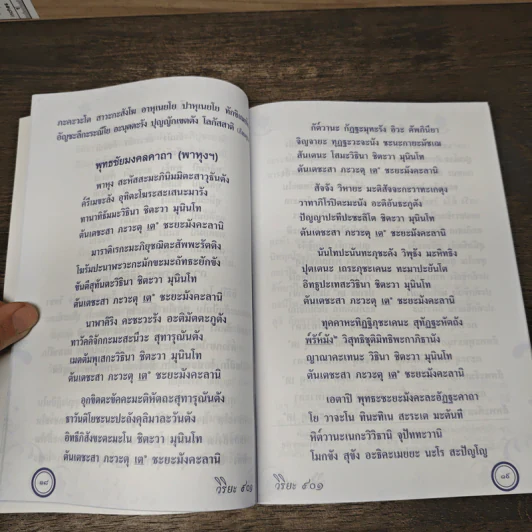 ภะคะวะโต สาวะกะสังโฆ อาหุเนยโย ปาหุเนยโย ทักขิเณยโย
อัญชะลีกะระณีโย อะนุตตะรัง ปุญญักเขตตัง โลกัสสาติ
พุทธชัยมงคลคาถา (พาหุงฯ)
พาหุง สะหัสสะมะภินิมมิตะสาวุธันตัง
ค๎รีเมขะลัง อุทิตะโฆระสะเสนะมารัง
ทานาทิธัมมะวิธินา ชิตะวา มุนินโท
ตันเตชะสา ภะวะตุ เต* ชะยะมังคะลานิ
มาราติเรกะมะภิยุชฌิตะสัพพะรัตติง
โฆรัมปะนาฬะวะกะมักขะมะถัทธะยักขัง
ขันตีสุทันตะวิธินา ชิตะวา มุนินโท
ตันเตชะสา ภะวะตุ เต* ชะยะมังคะลานิ
นาฬาคิริง คะชะวะรัง อะติมัตตะภูตัง
ทาวัคคิจักกะมะสะนีวะ สุทารุณันตัง
เมตตัมพุเสกะวิธินา ชิตะวา มุนินโท
ตันเตชะสา ภะวะตุ เต* ชะยะมังคะลานิ
อุกขิตตะขัคคะมะติหัตถะสุทารุณันตัง
ธาวันติโยชะนะปะถังคุลิมาละวันตัง
อิทธีภิสังขะตะมะโน ชิตะวา มุนินโท
ตันเตชะสา ภะวะตุ เต* ชะยะมังคะลานิ
๑๘
วิริยะ
กัต๎วานะ กัฏฐะมุทะรัง อิวะ คัพภินียา
จิญจายะ ทุฏฐะวะจะนัง ชะนะกายะมัชเฌ
สันเตนะ โสมะวิธินา ชิตะวา มุนินโท
ตันเตชะสา ภะวะตุ เต* ชะยะมังคะลานิ
สัจจัง วิหายะ มะติสัจจะกะวาทะเกตุง
วาทาภิโรปิตะมะนัง อะติอันธะภูตัง
ปัญญาปะทีปะชะลิโต ชิตะวา มุนินโท
ตันเตชะสา ภะวะตุ เต* ชะยะมังคะลานิ
นันโทปะนันทะภุชะคัง วิพุธัง มะหิทธิง
ปุตเตนะ เถระภุชะเคนะ ทะมาปะยันโต
อิทธูปะเทสะวิธินา ชิตะวา มุนินโท
ตันเตชะสา ภะวะตุ เต* ชะยะมังคะลานิ
ทุคคาหะทิฏฐิภุชะเคนะ สุทัฏฐะหัตถัง
พ๎รัห๎มัง* วิสุทธิชุติมิทธิพะกาภิธานัง
ญาณาคะเทนะ วิธินา ชิตะวา มุนินโท
ตันเตชะสา ภะวะตุ เต* ชะยะมังคะลานิ
เอตาปิ พุทธะชะยะมังคะละอัฏฐะคาถา
โย วาจะโน ทินะทิเน สะระเต มะตันที
หิต๎วานะเนกะวิวิธานิ จุปัททะวานิ
โมกขัง สุขัง อะธิคะเมยยะ นะโร สะปัญโญ
วิริยะ ๙๐๑
๑๙